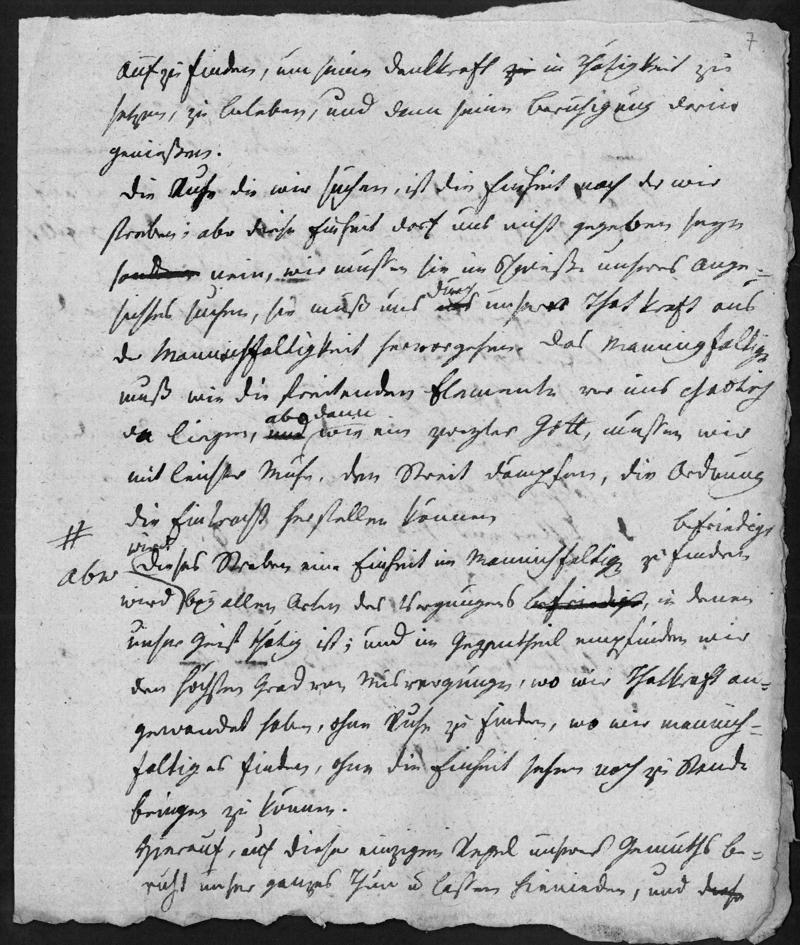 7
aufzufinden, um seine Denkkraft zu in Thätigkeit zu
setzen, zu beleben, und dann seine Beruhigung darin
geniessen.
Die Ruhe die wir suchen, ist die Einheit nach der wir
streben; aber diese Einheit darf uns nicht gegeben seyn
sondern nein, wir mussen sie im Schweisse unseres Ange=
sichtes suchen, sie muß uns durch aus unsere Thatkraft aus
der Mannichfaltigkeit hervorgehen. Das Manningfaltige
muß wie die streitenden Elemente vor uns chaotisch
da liegen, und aber dann wie ein zweyter Gott, mussen wir
mit leichter Muhe, den Streit dämpfen, die Ordnung
die Eintracht herstellen können
# aber wird Dieses Streben eine Einheit im Mannichfaltigen zu finden befriedigt
wird bey allen Arten des Vergnugens befriedigt, in denen
unser Geist thätig ist; und im Gegentheil empfinden wir
den höchsten Grad von Misvergnugen, wo wir Thatkraft an=
gewendet haben, ohne Ruhe zu finden, wo wir mannich=
faltiges finden, ohne die Einheit sehen noch zu Stande
bringen zu können.
Hierauf, auf dieser einzigen Regel unseres Gemüths be=
ruht unser ganzes Thun u lassen hienieden, und diese